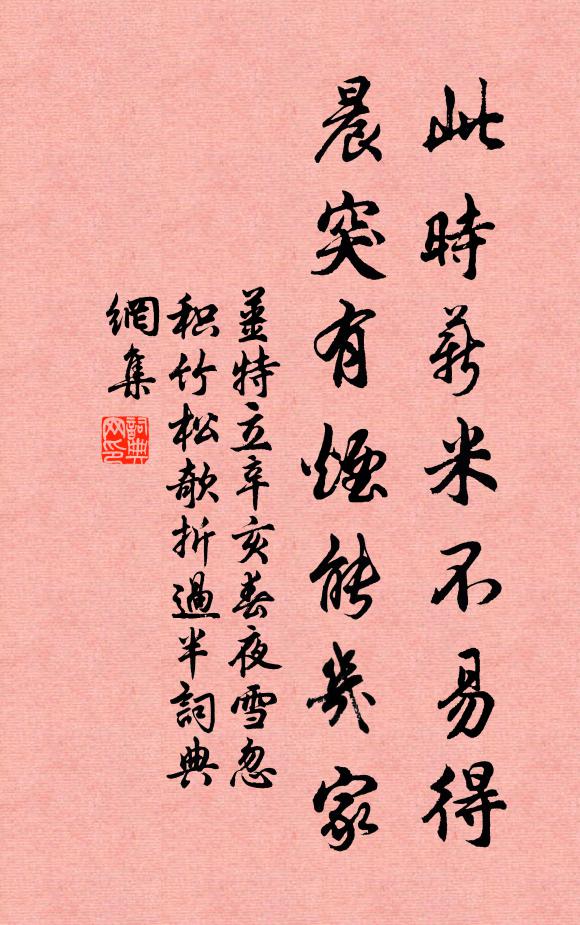 此時薪米不易得
晨突有煙能幾家
薑特立辛亥春夜雪忽
积竹松欹折過半詞典
網集
詞典
网印